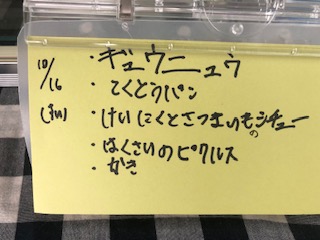 10/16
(水)
・ギュウニュウ
・こくとうパン
・けいにくとさつまいものシチュー
・はくさいのピクルス
・かき